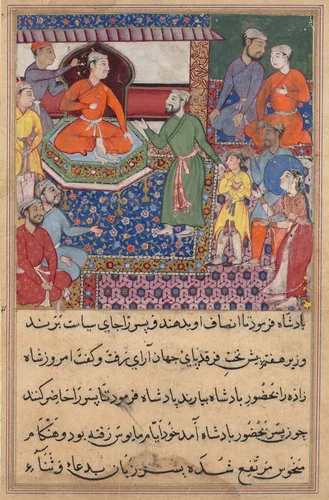 پادشاه فرمود تا انصاف او بدهند و پسر را جای سیاست برند
وزیر هفتم پیش تخت فرقدپای جهان آرای رفت و گفت امروز شاه
زاده را بحضور پادشاه بیارند پادشاه فرمود تا پسر را حاضر کنند
چون پسر بحضور پادشاه آمد خود ایام رمانوس رفته بود و هنگام
منحوس مرتفع شده پسر زبان بدعا و ثنا